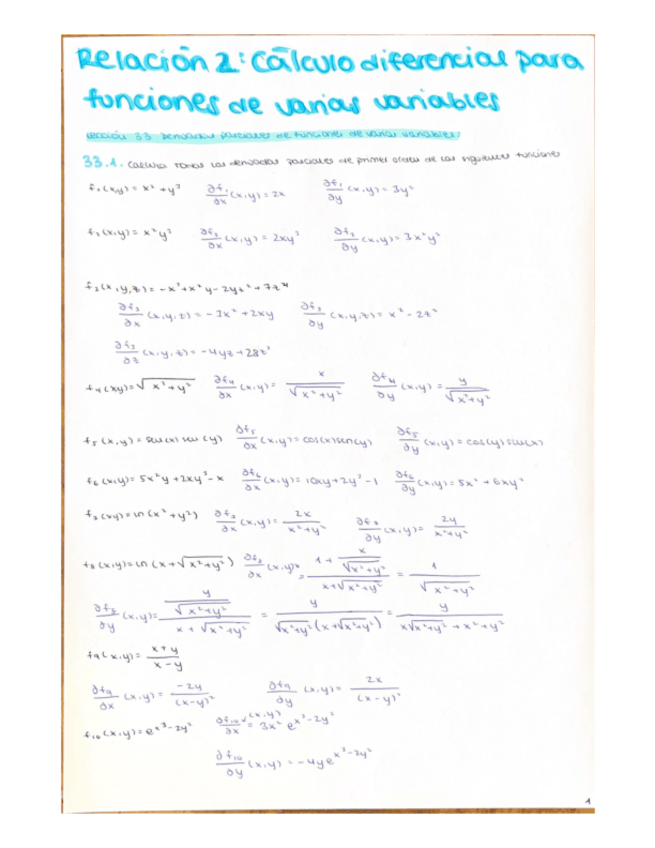 Relación 2: Cálculo diferencial para
funciones de varias variables
Lección 33 Derivadas parciales de funciones de varias variables.
33.1. Calcula todas las derivadas parciales de primer orden de las siguientes funciones
f₁(x,y) = x² + y³   ∂f₁/∂x (x,y) = 2x   ∂f₁/∂y (x,y) = 3y²
f₂(x,y) = x²y³   ∂f₂/∂x (x,y) = 2xy³   ∂f₂/∂y (x,y) = 3x²y²
f₃(x,y,z) = -x³+x²y-2yz²+7z⁴
∂f₃/∂x (x,y,z) = -3x²+2xy   ∂f₃/∂y (x,y,z) = x²-2z²
∂f₃/∂z (x,y,z) = -4yz+28z³
f₄(xy) = √(x²+y²)   ∂f₄/∂x (x,y) = x/√(x²+y²)   ∂f₄/∂y (x,y) = y/√(x²+y²)
f₅(x,y) = sen(x) sen(y)   ∂f₅/∂x (x,y) = cos(x)sen(y)   ∂f₅/∂y (x,y) = cos(y)sen(x)
f₆(x,y) = 5x²y+2xy³-x   ∂f₆/∂x (x,y) = 10xy+2y³-1   ∂f₆/∂y (x,y) = 5x²+6xy²
f₇(xy) = ln(x²+y²)   ∂f₇/∂x (x,y) = 2x/(x²+y²)   ∂f₇/∂y (x,y) = 2y/(x²+y²)
f₈(x,y) = ln(x+√(x²+y²))   ∂f₈/∂x (x,y) = (1 + x/√(x²+y²))/(x+√(x²+y²)) = 1/√(x²+y²)
∂f₈/∂y (x,y) = (y/√(x²+y²))/(x+√(x²+y²)) = y/(√(x²+y²)(x+√(x²+y²))) = y/(x√(x²+y²)+x²+y²)
f₉(x,y) = (x+y)/(x-y)
∂f₉/∂x (x,y) = -2y/(x-y)²   ∂f₉/∂y (x,y) = 2x/(x-y)²
f₁₀(x,y) = e^(x³-2y²)   ∂f₁₀/∂x (x,y) = 3x² e^(x³-2y²)
∂f₁₀/∂y (x,y) = -4ye^(x³-2y²)
1